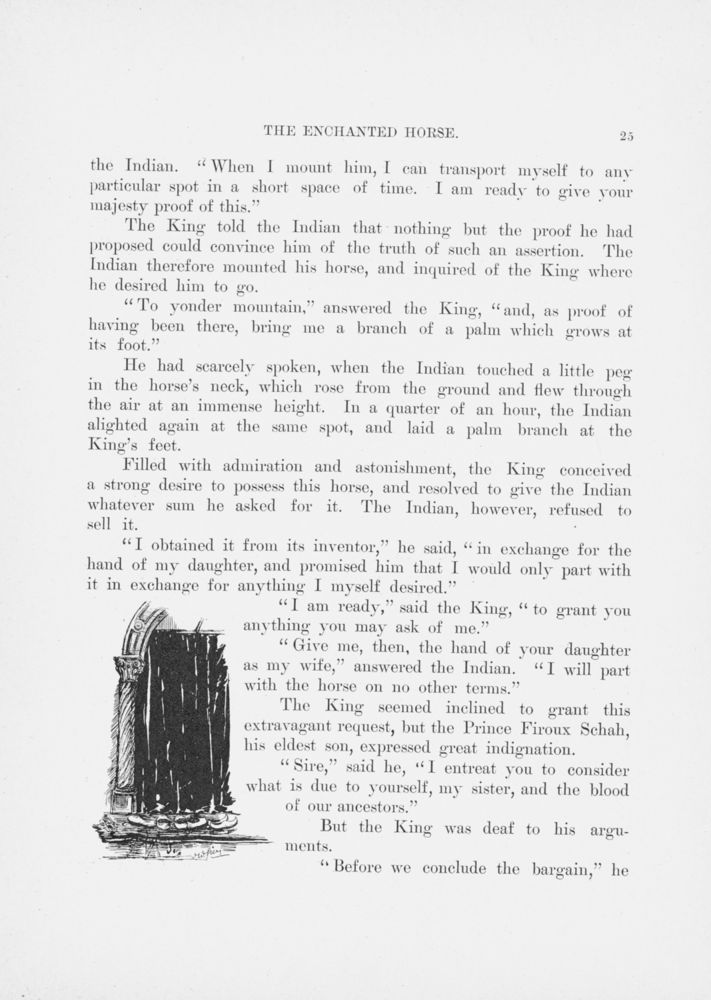 THE ENCHANTED HORSE. 25
the Indian. “When I mount him, I can transport myself to any
particular spot in a short space of time. I am ready to give your
majesty proof of this.”
The King told the Indian that nothing but the proof he had
proposed could convince him of the truth of such an assertion. The
Indian therefore mounted his horse, and inquired of the King where
he desired him to go.
“To yonder mountain,” answered the King, “and, as proof of
having been there, bring me a branch of a palm which grows at
its foot.”
He had scarcely spoken, when the Indian touched a little peg
in the horse’s neck, which rose from the ground and flew through
the air at an immense height. In a quarter of an hour, the Indian
alighted again at the same spot, and laid a palm branch at the
King’s feet.
Filled with admiration and astonishment, the King conceived
a strong desire to possess this horse, and resolved to give the Indian
whatever sum he asked for it. The Indian, however, refused to
sell it.
“I obtained it from its inventor,” he said, “in exchange for the
hand of my daughter, and promised him that I would only part with
it in exchange for anything I myself desired.”
“I am ready,” said the King, “to grant you
anything you may ask of me.”
“Give me, then, the hand of your daughter
as my wife,” answered the Indian. “I will part
with the horse on no other terms.”
The King seemed inclined to grant this
extravagant request, but the Prince Firoux Schah,
his eldest son, expressed great indignation.
“Sire,” said he, “I entreat you to consider
what is due to yourself, my sister, and the blood
of our ancestors.”
But the King was deaf to his argu-
ments.
“Before we conclude the bargain,” he